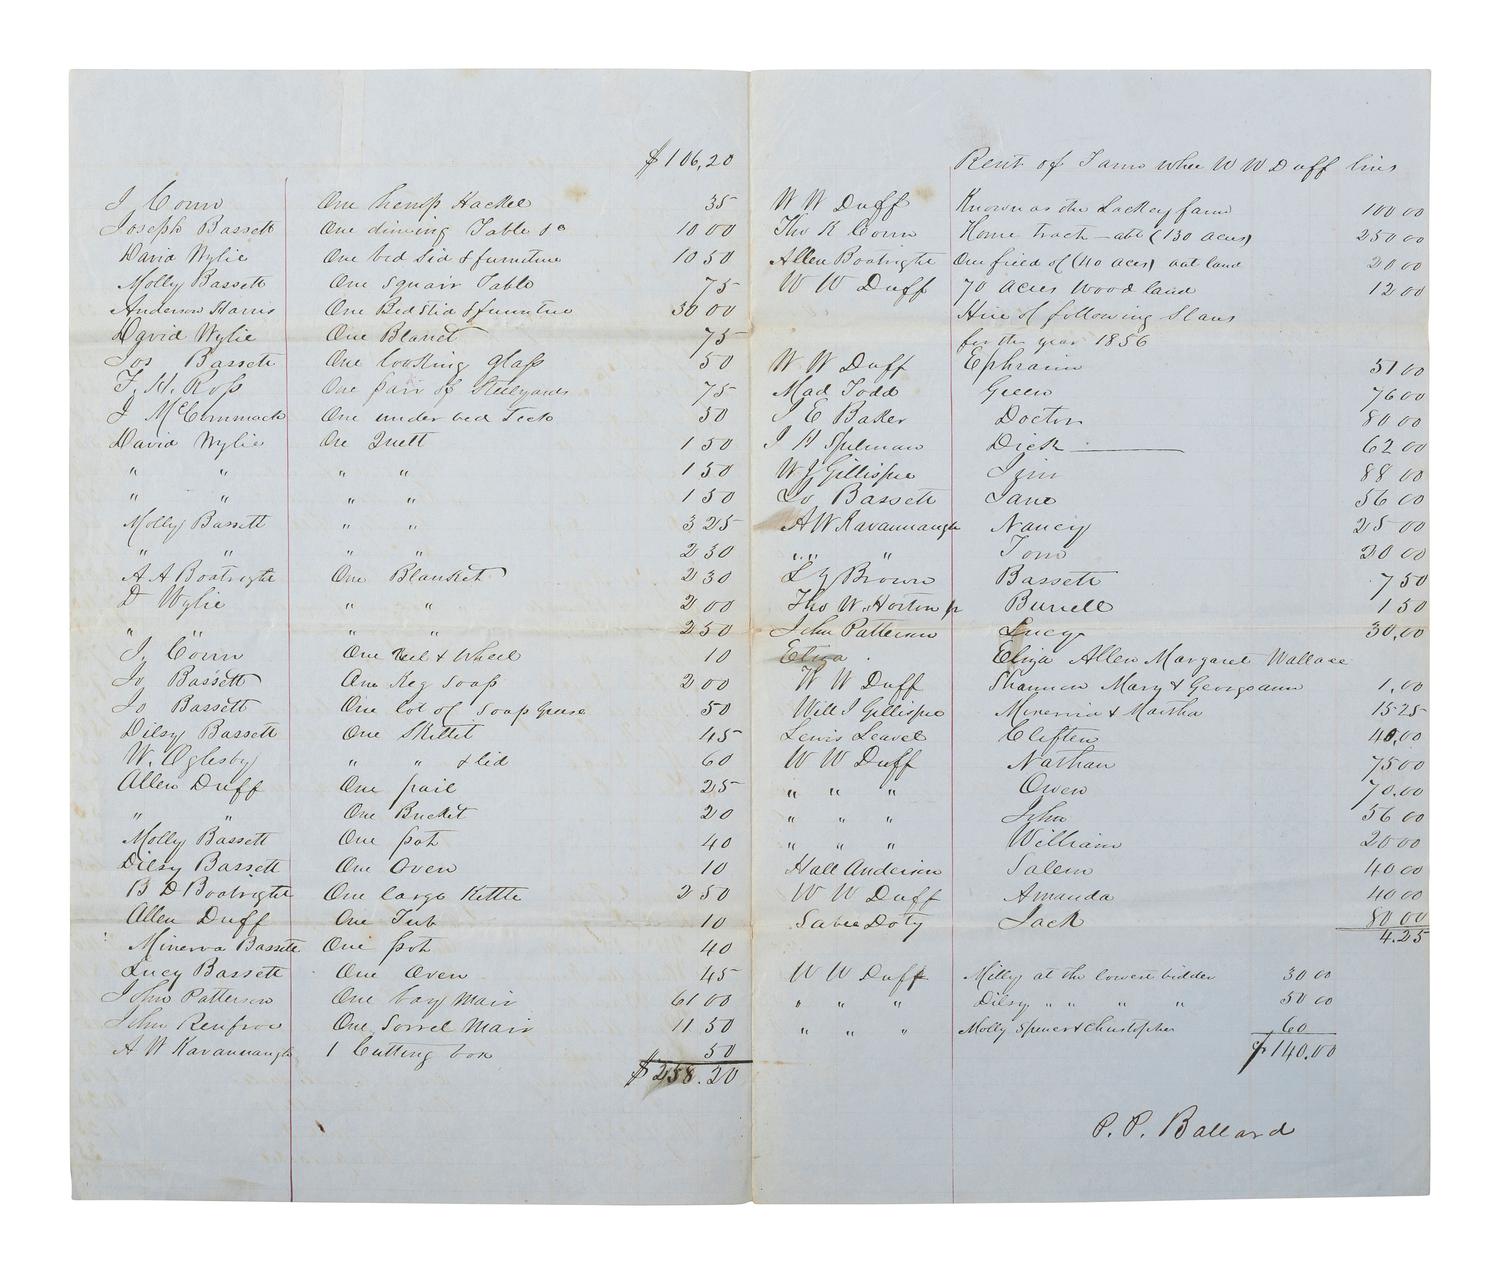 $106,20
J Conn One hemp Hackel 35
Joseph Bassett One dinving Table &c 10 00
David Wylie One bed sid & furniture 10 50
Molly Bassett One Squair Table 75
Anderson Harris One Bedstid & furnitue 30 00
David Wylie One Blanet 75
Jos Bassett One looking glass 50
F. H. Ross One pair of Steelyards 75
J McCormmack One under bed Teck 50
David Wylie One Quilt 1 50
" " " " 1 50
" " " " 1 50
Molly Bassett " " 3 25
" " " " 2 30
A A Boatright One Blanket 2 30
D Wylie " " 2 00
" " " " 2 50
J. Conn One Reel & Wheel 10
Jo Bassett One Keg Soap 2 00
Jo Bassett One lot of Soap Grese 50
Dilsy Bassett One Skillit 45
W. Oglesby " " & lid 60
Allen Duff One pail 25
" " One Bucket 20
Molly Bassett One pot 40
Dilsy Bassett One Oven 10
B D Boatright One large Kettle 2 50
Allen Duff One Tub 10
Minerva Bassett One pot 40
Lucy Bassett One Oven 45
John Patterson One bay Mair 61 00
John Renfrow One Sorrel Mair 11 50
A W Kavannaugh 1 Cutting box 50
$258.20
Rent of Farm whee W W Duff livs
W W Duff Known as the Lackey farm 100 00
Tho K Conn Home tract – abt (130 acres) 250 00
Allen Boatright One field of (40 acers) out land 20 00
W W Duff 70 acres Wood land 12 00
Hire of following Slavs
for the year 1856
W W Duff Ephraim 51 00
Mad Todd Green 76 00
J E Baker Doctor 80 00
J H Spilman Dick 62 00
W J Gillispie Jim 88 00
Jo Bassett Jane 56 00
A W Kavannaugh Nancy 25 00
" " " Tom 20 00
L Y Brown Bassett 7 50
Tho W. Horton jr Burrell 1 50
John Patterson Lucy 30,00
Eliza Eliza Allen Margaret Wallace
W W Duff Shannon Mary & Georgeann 1,00
Will J Gillispie Minervia & Martha 15.25
Lewis Leavel Cliften 40,00
W W Duff Nathan 75 00
" " " Owen 70.00
" " " John 56 00
" " " William 20 00
Hall Anderson Salem 40 00
W W Duff Amanda 40 00
Sabee Doty Jack 80 00
4.25
W W Duff Milly at the lowest bidder 30 00
" " " Dilsy " " " " 50 00
" " " Molly Spencer & Christopher 60
$140.00
P. P. Ballard